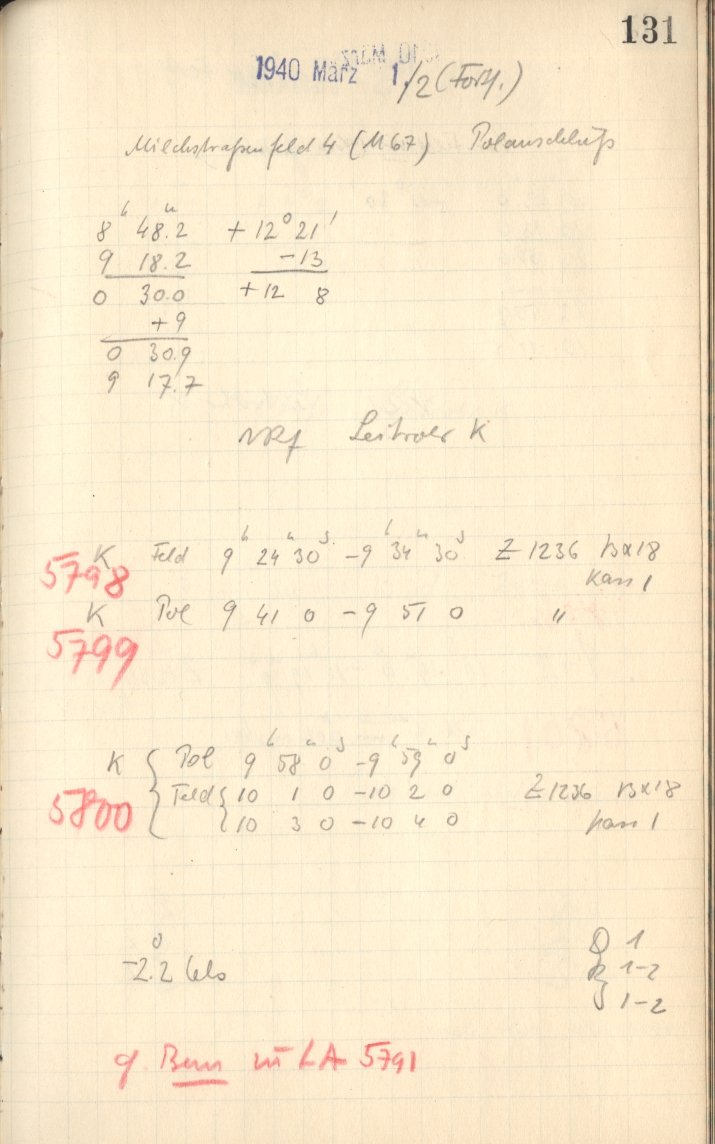 131
1940 März 1./2 (Forts.)
Milchstraßenfeld 4 (M67) Polanschluß
8h 48.2m +12° 21'
9 18.2 -13
0 30.0 +12 8
+9
0 30.9
9 17.7
Leitrohr K
K Feld 9h 24m 30s - 9h 34m 30s Z 1236 13x18
5798 Kass 1
K Pol 9 41 0 - 9 51 0 "
5799
K Pol 9h 58m 0s - 9h 59m 0s
5800 Feld 10 1 0 - 10 2 0 Z 1236 13x18
10 3 0 - 10 4 0 Kass 1
1
-2.2° Cels 1-2
1-2
Bem zu LA 5791